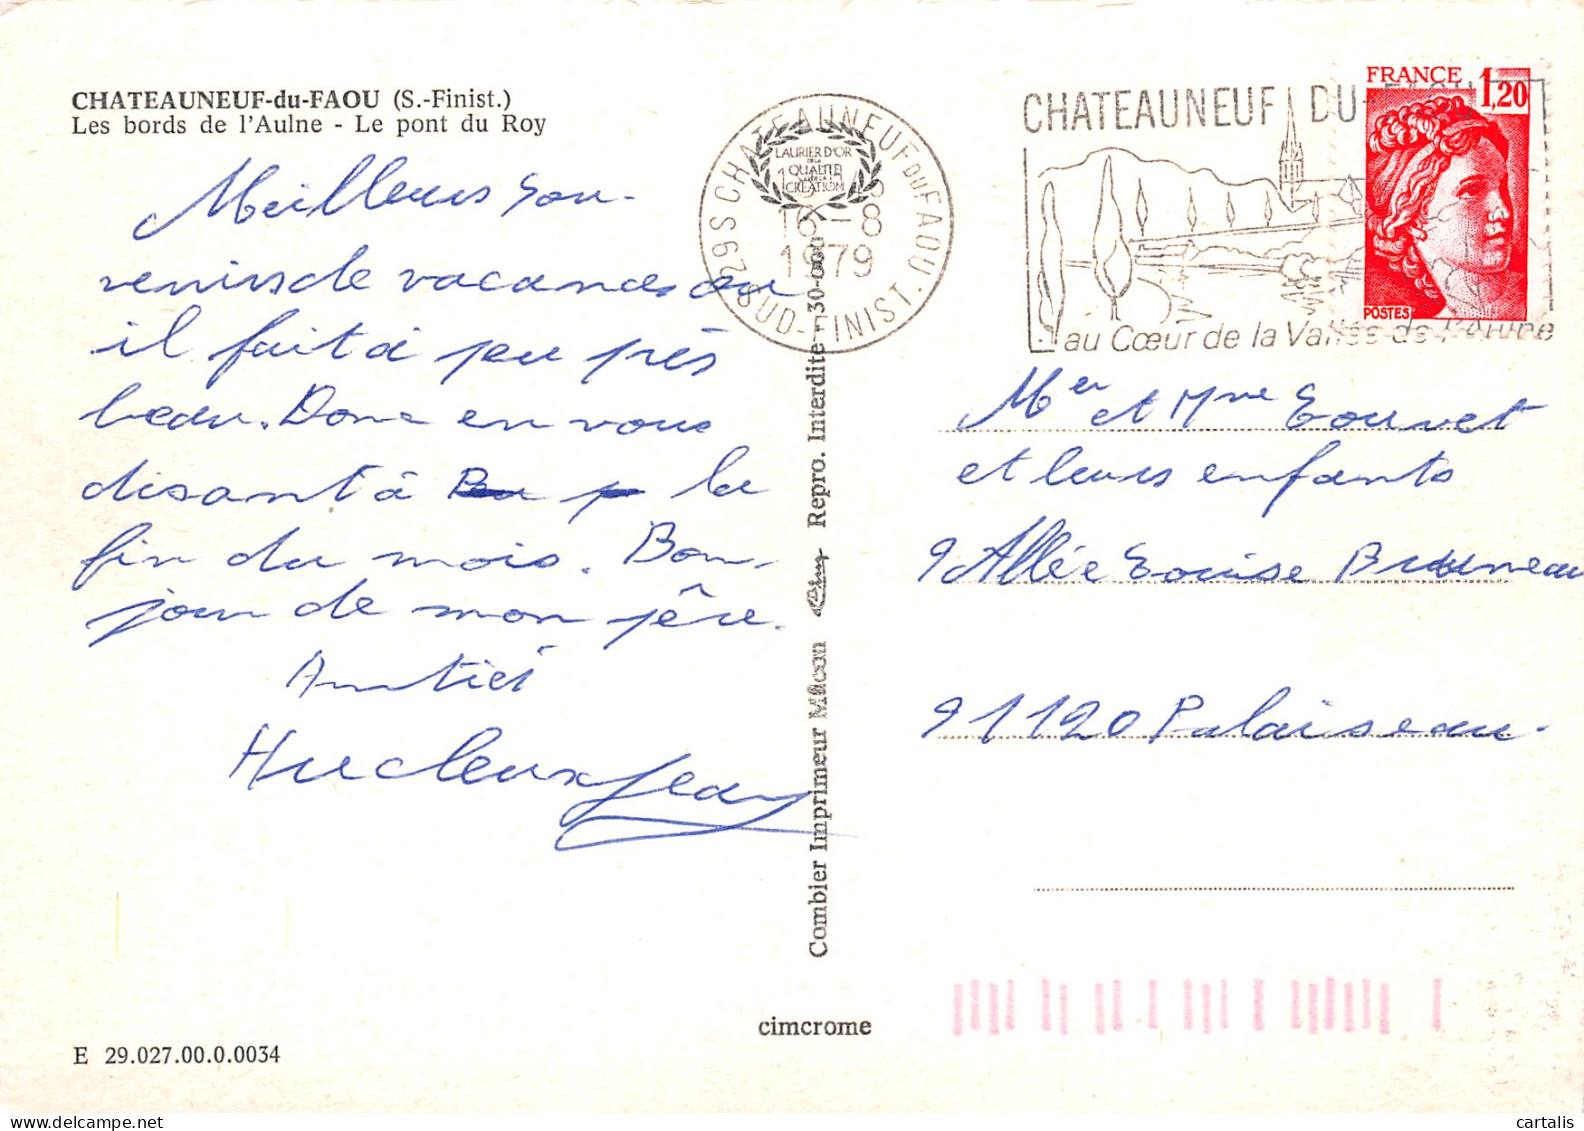 CHATEAUNEUF-du-FAOU (S.-Finist.)
Les bords de l'Aulne - Le pont du Roy
Meilleurs Sou-
venirs de vacances ou
il fait à peu près
beau. Donc en vous
disant à la
fin du mois. Bon-
jour de mon père.
Amitiés
Hucleux Jean
E 29.027.00.0.0034
cimcrome
Combier Imprimeur Mâcon
Repro. Interdite - 30-060
29S CHATEAUNEUF DU FAOU
SUD-FINIST.
16-8
1979
LAURIER D'OR
DE LA
QUALITE
CREATION
CHATEAUNEUF DU FAOU
au Cœur de la Vallée de l'Aulne
FRANCE 1,20
POSTES
Mer et Mme Louvet
et leurs enfants
9 Allée Louise Bruneau
91120 Palaiseau.
cartalis